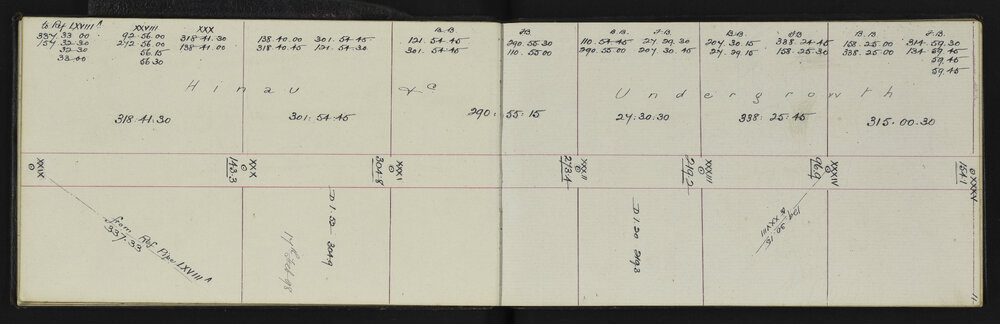 to Ref LXVIII A
337.33 00
157.32.30
32.30
33.00
XXVIII
92.56.00
272.56.00
56.15
56.30
XXX
318.41.30
138.41.00
138.40.00
318.40.45
301.54.45
121.54.30
B.B.
121.54.45
301.54.45
F.B.
290.55.30
110.55.00
B.B.
110.54.45
290.55.00
F.B.
27.29.30
207.30.45
B.B.
207.30.15
27.29.15
F.B.
338.24.45
158.25.30
B.B.
158.25.00
338.25.00
F.B.
314.59.30
134.59.45
59.45
59.45
Hinau &a Undergrowth
318.41.30
301.54.45
290.55.15
27.30.30
338.25.45
315.00.30
XXIX
XXX
143.3
XXXI
304.8
XXXII
273.4
XXXIII
219.2
XXXIV
96.9
XXXV
154.1
from Ref Pipe LXVIII A
337.33
D 1.52 304.9
17th Feb 98
D 1.20 219.3
XXVIII
11